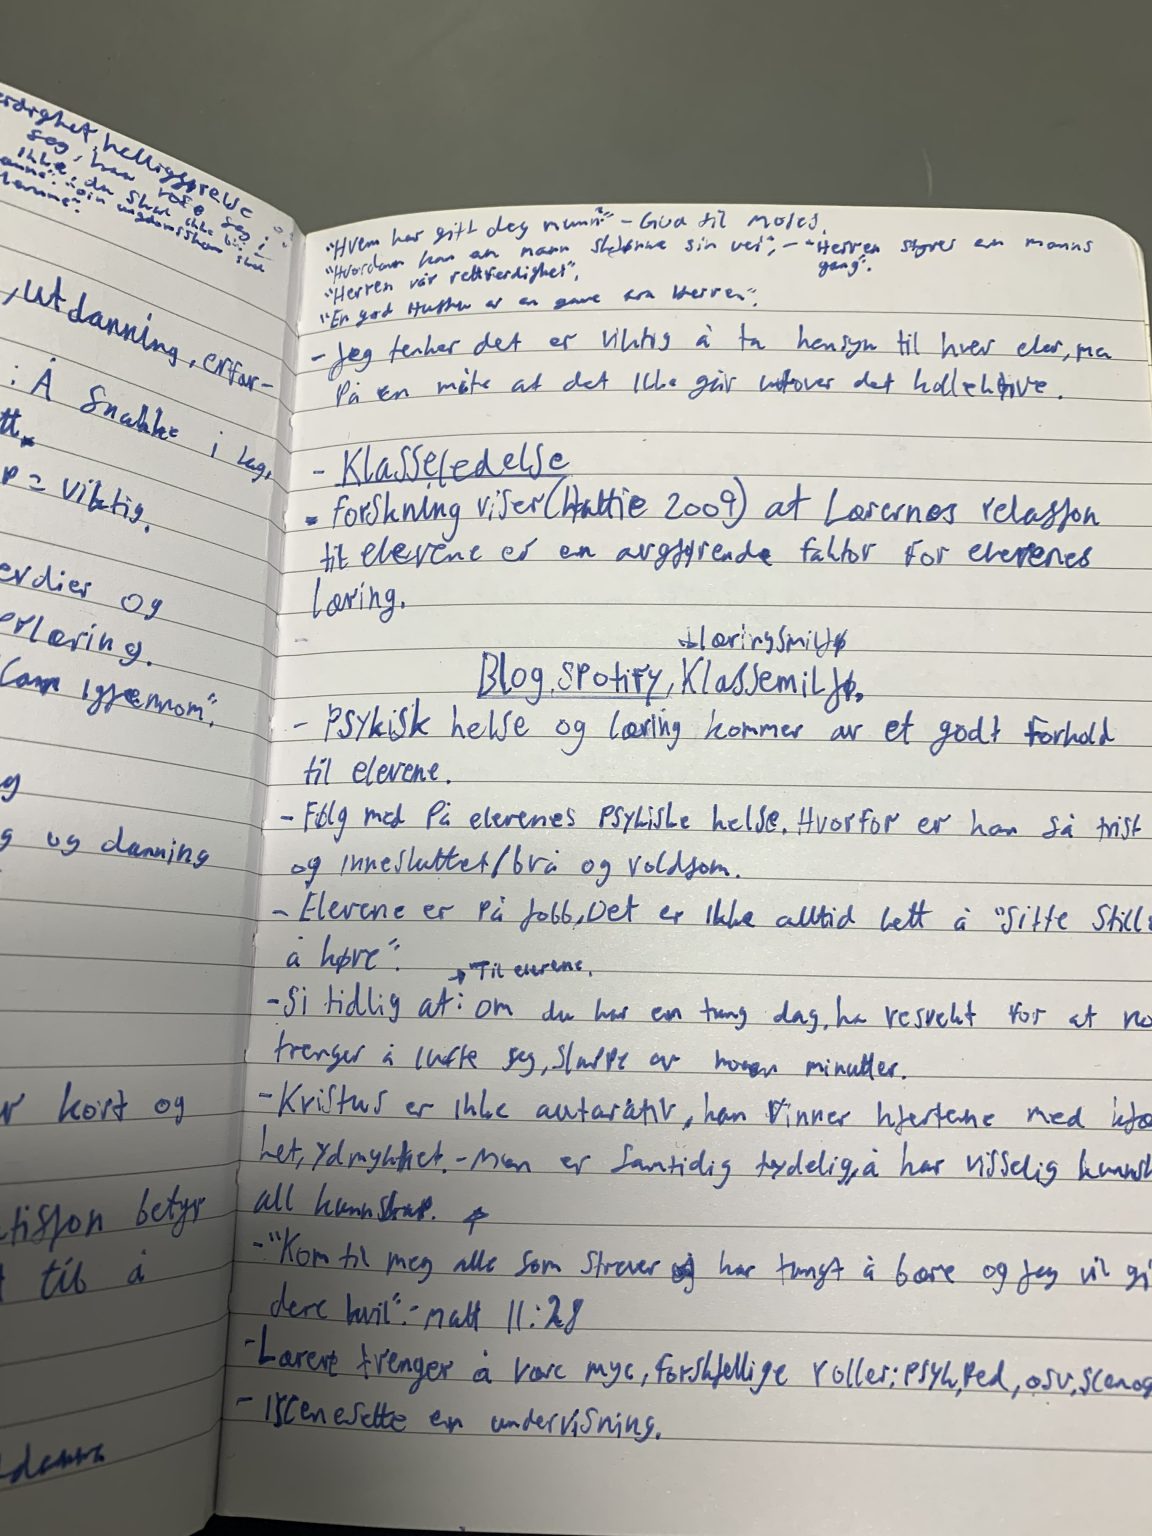 erdighet, helliggjørelse
seg, han rose seg i
ikke, du skal ikke bli
, utdanning, erfar-
: Å snakke i lag,
tt.
p = viktig.
erdier og
erlæring.
igjennom".
g
g og danning
r kort og
tisjon betyr
t til å
"Hvem har gitt deg munn" - Gud til Moses.
"Hvordan kan en mann skjønne sin vei", - "Herren styrer en manns
gang".
"Herren vår rettferdighet".
"En god Hustru er en gave fra Herren".
- Jeg tenker det er viktig å ta hensyn til hver elev, men
På en måte at det ikke går utover det kollektive.
- Klasseledelse
- forskning viser (Hattie 2009) at Lærernes relasjon
til elevene er en avgjørende faktor for elevenes
læring.
+læringsmiljø
Blog, spotify, Klassemiljø,
- Psykisk helse og læring kommer av et godt forhold
til elevene.
- Følg med på elevenes psykiske helse. Hvorfor er han så trist
og innesluttet/brå og voldsom.
- Elevene er på jobb, Det er ikke alltid lett å "sitte stille
å høre".
→ Til elevene.
- Si tidlig at: om du har en tung dag, ha respekt for at no
trenger å lufte seg, slappe av noen minutter.
- Kristus er ikke autorativ, han vinner hjertene med
het, ydmykhet. - Men er samtidig tydelig, å har visselig kunnsk
all kunnskap.
- "Kom til meg alle som strever og har tungt å bære og jeg vil gi
dere hvil". - Matt 11:28
- Lærere trenger å være mye, forskjellige roller; Psyk, Ped, osv, scenog
- iscenesette en undervisning.